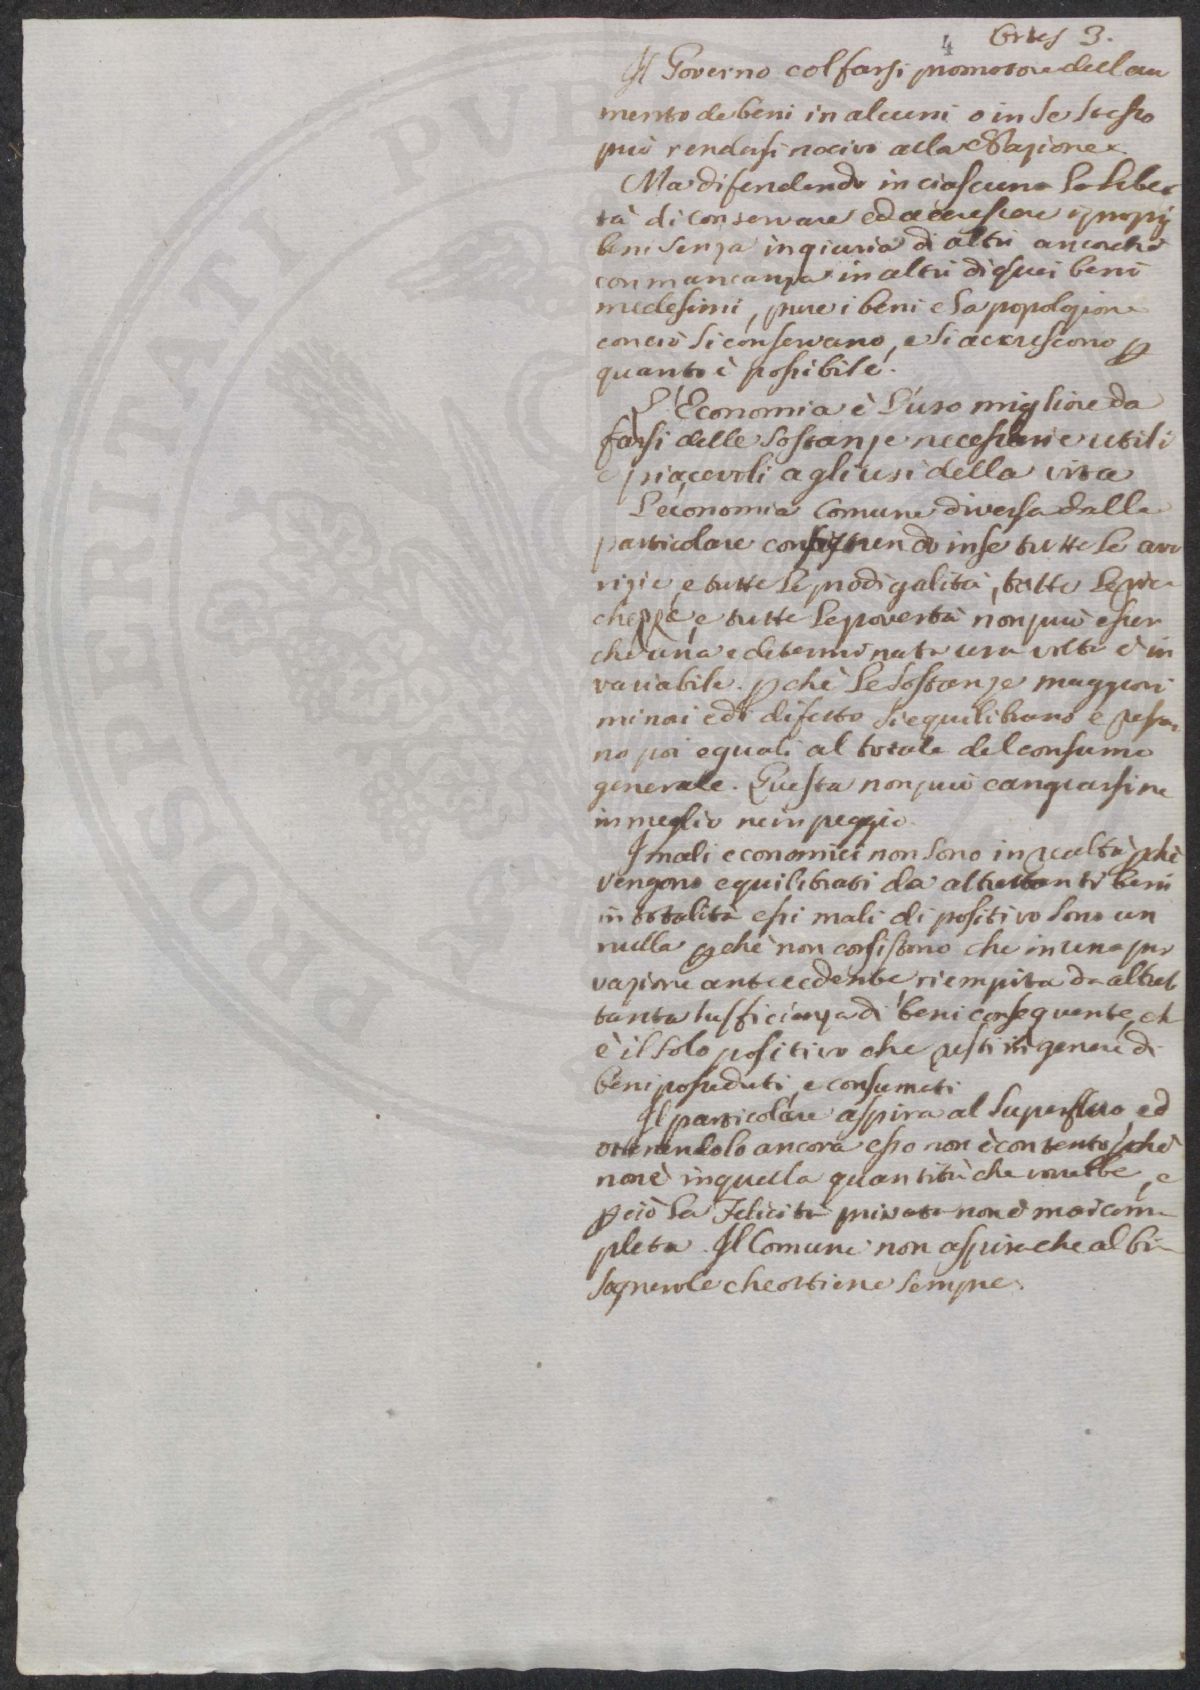 Ortes 3.
4
Il Governo col farsi promotore dell'au
mento de beni in alcuni o in se stesso
può rendersi nocivo alla Nazione.
Ma difendendo in ciascuno la liber
tà di conservare ed accrescere i proprj
beni senza ingiuria di altri ancorchè
con mancanza in altri di quei beni
medesimi, pure i beni e la popolazione
con ciò si conservano, e si accrescono p
quanto è possibile.
L'Economia è l'uso migliore da
farsi delle sostanze necessarie utili
e piacevoli agli usi della vita
L'economia comune diversa dalla
particolare contenendo in se tutte le ava
rizie, e tutte le prodigalità, tutte le ric
chezze, e tutte le povertà non può esser
che una e determinata una volta è in
variabile. pchè le sostanze maggiori
minori ed di difetto si equilibrano e resta
no poi eguali al totale del consumo
generale. Questa non può cangiarsi ne
in meglio ne in peggio.
I mali economici non sono in realtà pchè
vengono equilibrati da altrettanti beni
in totalità essi mali di positivo sono un
nulla pchè non consistono che in una pri
vazione antecedente riempita da altret
tanta sufficienza di beni conseguente, ch
è il solo positivo che resti in genere di
beni posseduti, e consumati
Il particolare aspira al superfluo ed
ottenendolo ancora esso non è contento pchè
non è in quella quantità che vorrebbe, e
pciò la Felicità privata non è mai com
pleta. Il Comune non aspira che al bi
sognevole che ottiene sempre.
PVBL